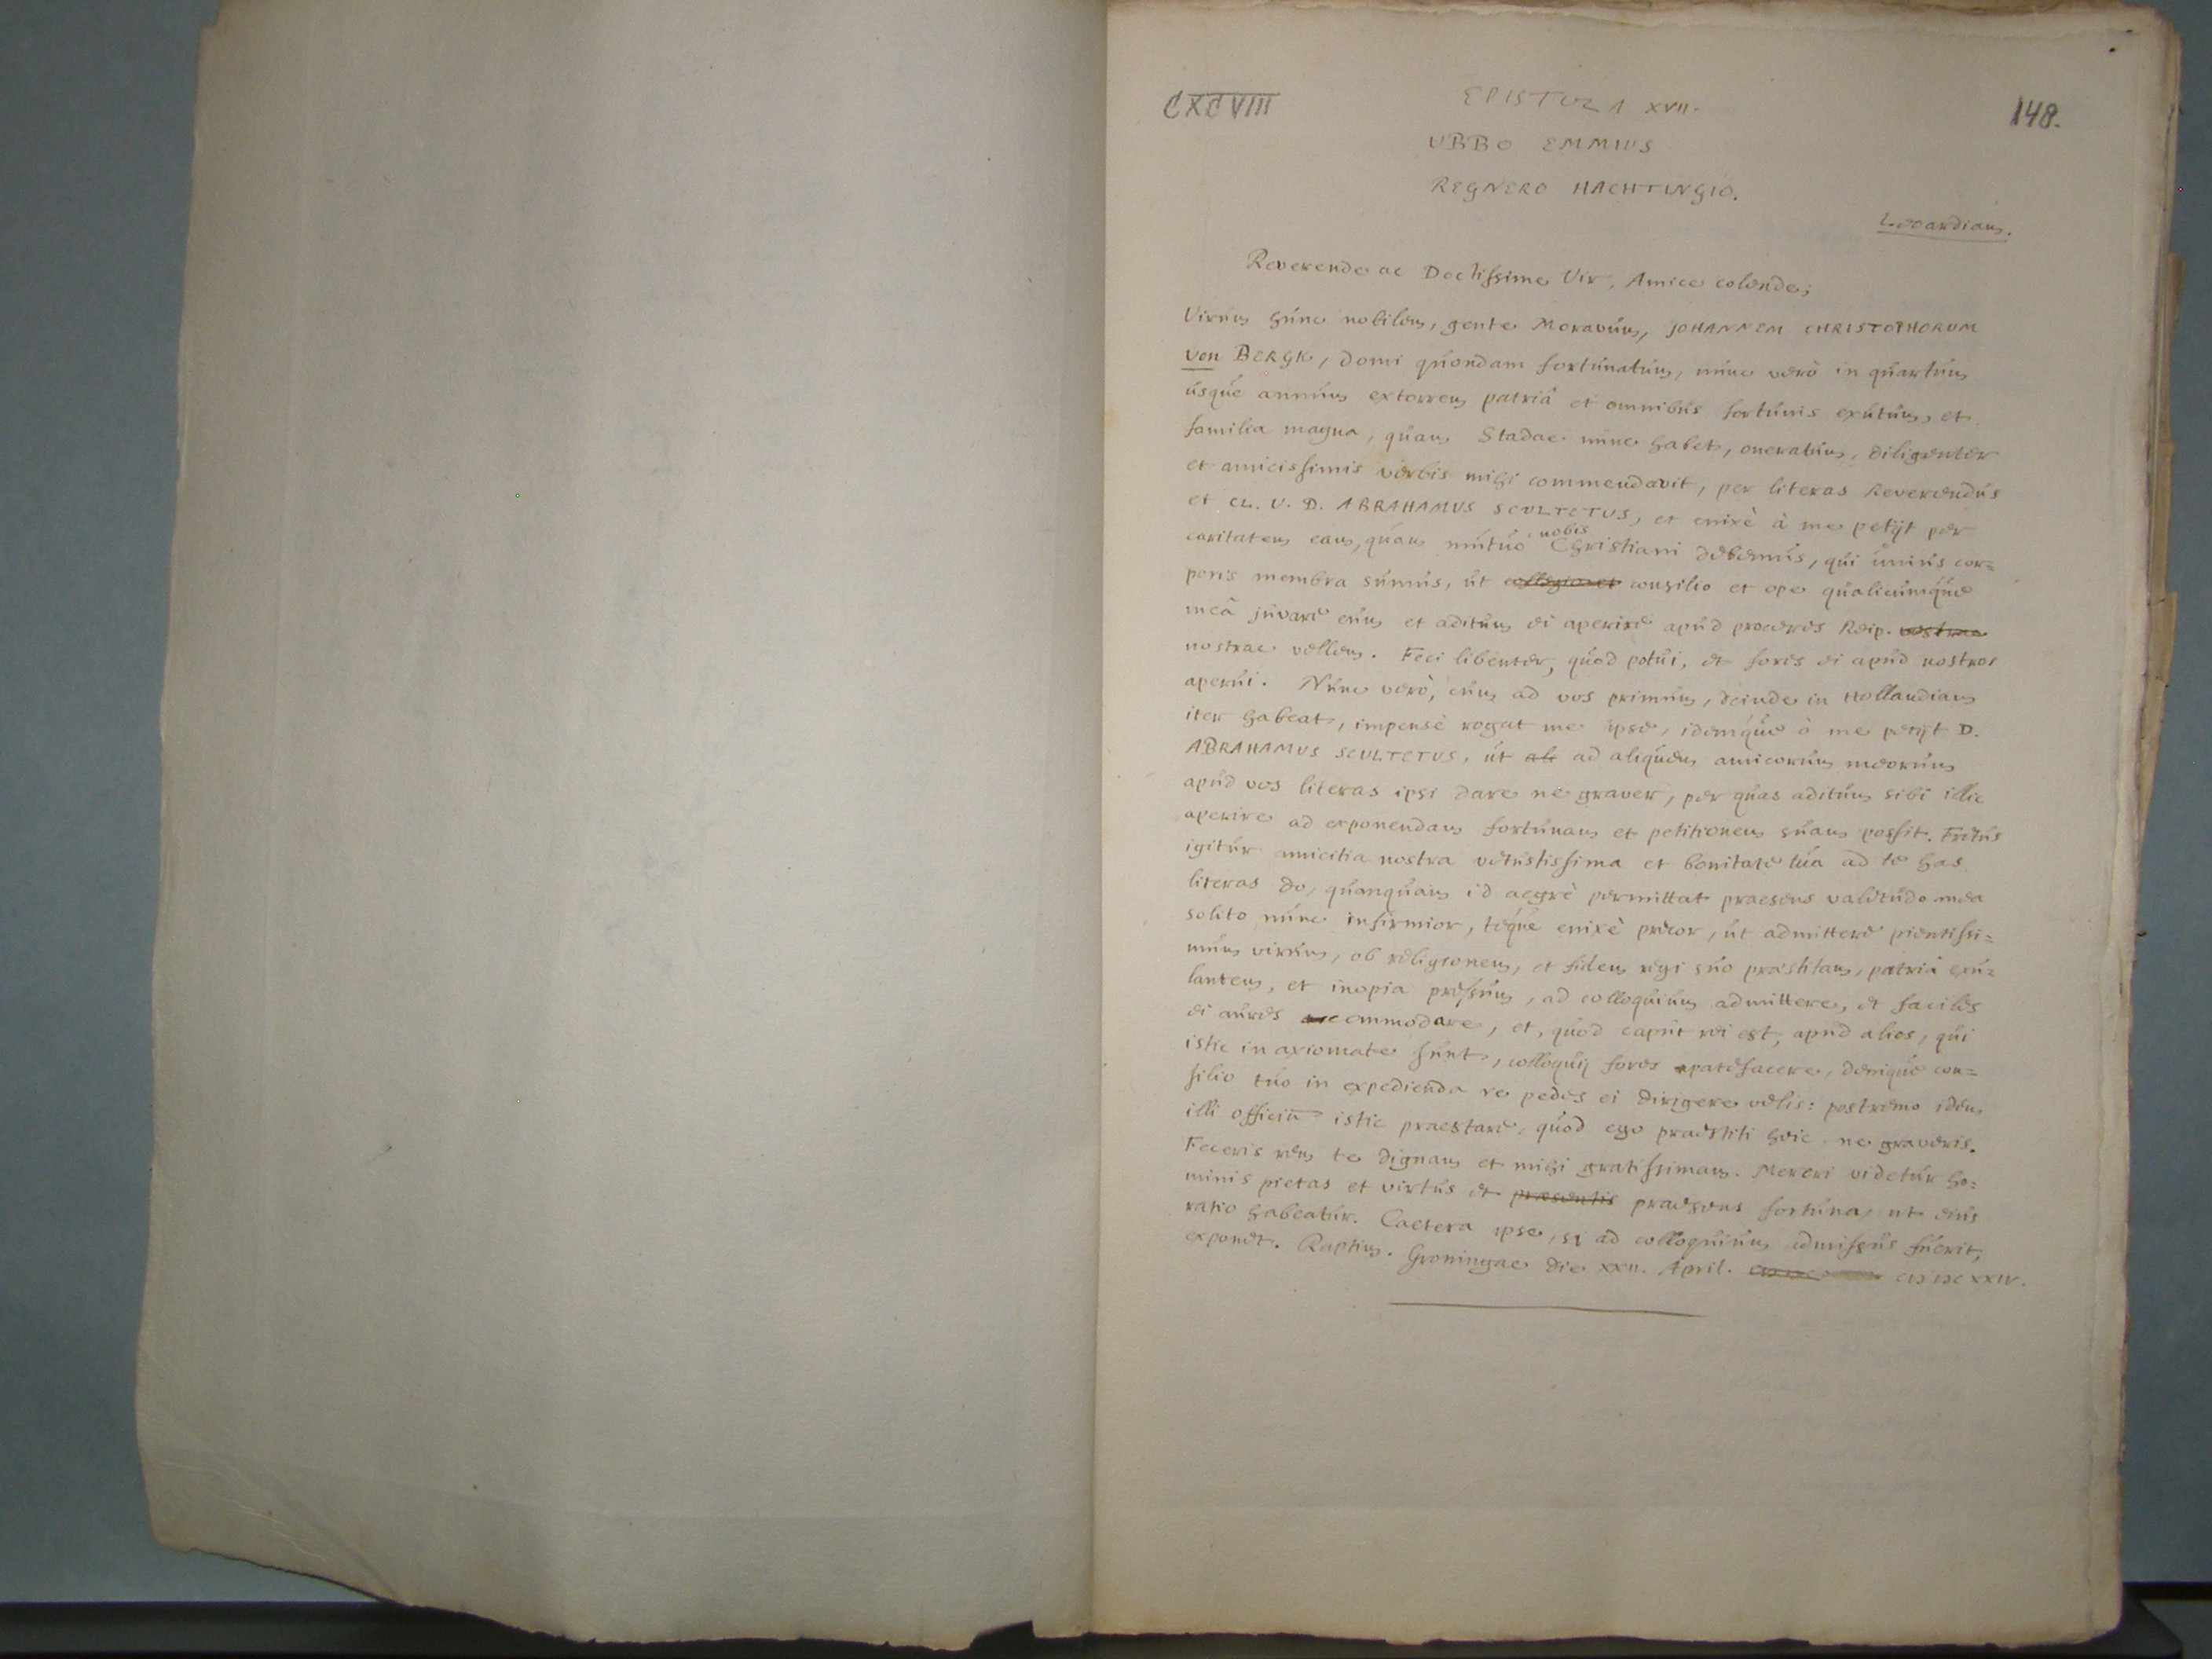 CXCVIII
EPISTOLA XVII.
148.
UBBO EMMIUS
REGNERO HACHTINGIO.
Leoardiam.
Reverende ac Doctissime Vir, Amice colende;
Virum hunc nobilem, gente Moravum, JOHANNEM CHRISTOPHORUM
von BERGK, domi quondam fortunatum, nunc verò in quartum
usque annum extorrem patriâ et omnibus fortunis exutum, et
familia magna, quam Stadae nunc habet, oneratum, diligenter
et amicissimis verbis mihi commendavit, per literas Reverendus
et CL. V. D. ABRAHAMUS SCULTETUS, et enixè à me petijt per
caritatem eam, quam mutuò nobis Christiani debemus, qui unius cor=
poris membra sumus, ut consilio et ope qualicumque
meâ juvare eum et aditum ei aperire apud proceres Reip.
nostrae vellem. Feci libenter, quod potui, et fores ei apud nostros
aperui. Nunc verò, cum ad vos primum, deinde in Hollandiam
iter habeat, impensè rogat me ipse, idemque à me petijt D.
ABRAHAMUS SCULTETUS, ut ad aliquem amicorum meorum
apud vos literas ipsi dare ne graver, per quas aditum sibi illic
aperire ad exponendam fortunam et petitionem suam possit. Fretus
igitur amicitia nostra vetustissima et bonitate tua ad te has
literas do, quanquam id aegrè permittat praesens valetudo mea
solito nunc infirmior, teque enixè precor, ut admittere pientissi=
mum virum, ob religionem, et fidem regi suo praestitam, patriâ exu=
lantem, et inopia pressum, ad colloquium admittere, et faciles
ei aures accommodare, et, quod caput rei est, apud alios, qui
istic in axiomate sunt, colloquij fores patefacere, denique con=
silio tuo in expedienda re pedes ei dirigere velis: postremo idem
illi officiū istic praestare, quod ego praestiti heic ne graveris.
Feceris rem te dignam et mihi gratissimam. Mereri videtur ho=
minis pietas et virtus et praesens fortuna, ut eius
ratio habeatur. Caetera ipse, si ad colloquium admissus fuerit,
exponet. Raptim. Groningae die XXII. April. CIↃ IↃC XXIV.